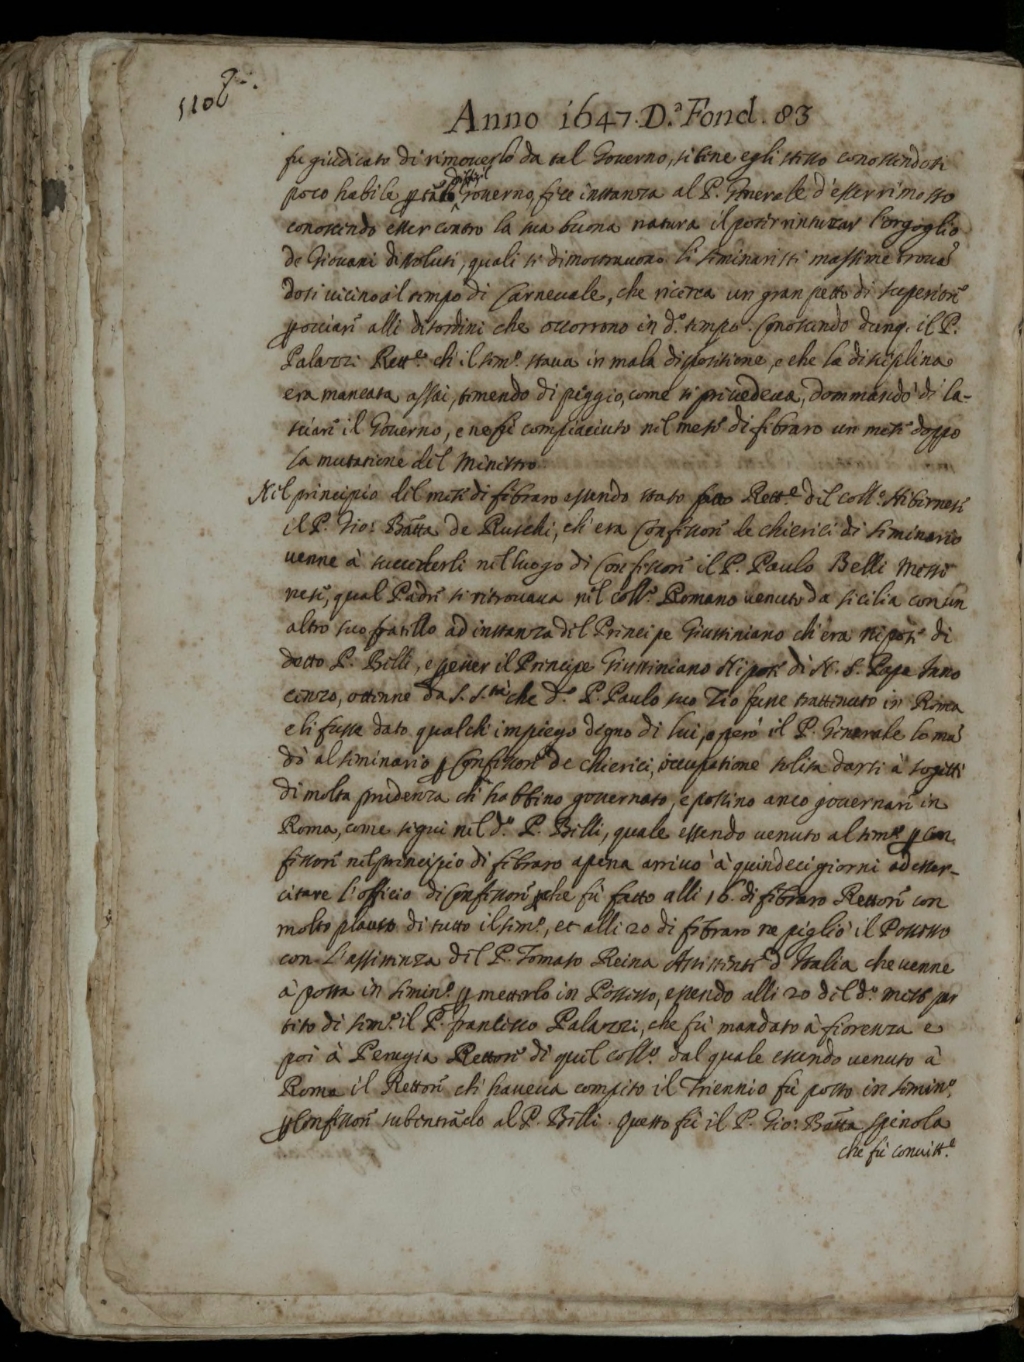 510
Anno 1647. D.ª Fond. 83
fu giudicato di rimouerlo da tal Gouerno, si bene egli stesso conoscendosi
poco habile p tale difficil Gouerno, fece instanza al P. Generale d'esser rimosso
conoscendo esser contro la sua buona natura il poter rintuzar l'orgoglio
de Giouani dissoluti, quali si dimostrauano li seminaristi massime trouã
dosi vicino al tempo di Carneuale, che ricerca un gran petto di superiore
p ouiare alli disordini che occorrono in d.º tempo. Conoscendo dunq. il P.
Palazzi Rett.re ch' il sem.º staua in mala dispositione, e che la disciplina
era mancata assai, temendo di peggio, come si preuedeua, dommandò di la-
sciare il Gouerno, e ne fù compiaciuto nel mese di febraro un mese doppo
la mutatione del Ministro.
Nel principio del mese di febraro essendo stato fatto Rett.e del coll.º Hibernese
il P. Gio: Batta de Ruschi, ch' era Confessore de chierici di seminario
uenne à succederli nel luogo di Confessore il P. Paulo Belli Messi
nese, qual Padre si ritrouaua nel coll.º Romano uenuto da Sicilia con un
altro suo fratello ad instanza del Principe Giustiniano ch' era nipote di
detto P. Belli, e p esser il Principe Giustiniano Nipote di N. S. Papa Inno
cenzo, ottenne da S. S.tà che d.º P. Paulo suo Zio fusse trattenuto in Roma
e li fusse dato qualch' impiego degno di lui, e però il P. Generale lo mã
dò al seminario p Confessore de chierici, occupatione solita darsi à sogetti
di molta prudenza ch' habbino gouernato, e possino anco gouernare in
Roma, come seguì nel d.º P. Belli, quale essendo uenuto al sem.º p con
fessore nel principio di febraro apena arriuò à quindeci giorni ad esser-
citare l'officio di Confessore che fù fatto alli 16. di febraro Rettore con
molto plauso di tutto il sem.º, et alli 20 di febraro ne pigliò il Possesso
con l'assistenza del P. Tomaso Reina Assistente d'Italia che uenne
à posta in semin.º p metterlo in Possesso, essendo alli 20 del d.º mese par
tito di sem.º il P. Francesco Palazzi, che fù mandato à fiorenza e
poi à Perugia Rettore di quel coll.º dal quale essendo uenuto à
Roma il Rettore ch' haueua compito il Triennio fù posto in semin.º
p Confessore subentrãdo al P. Belli. Questo fù il P. Gio: Batta Spinola
che fù conuitt.e